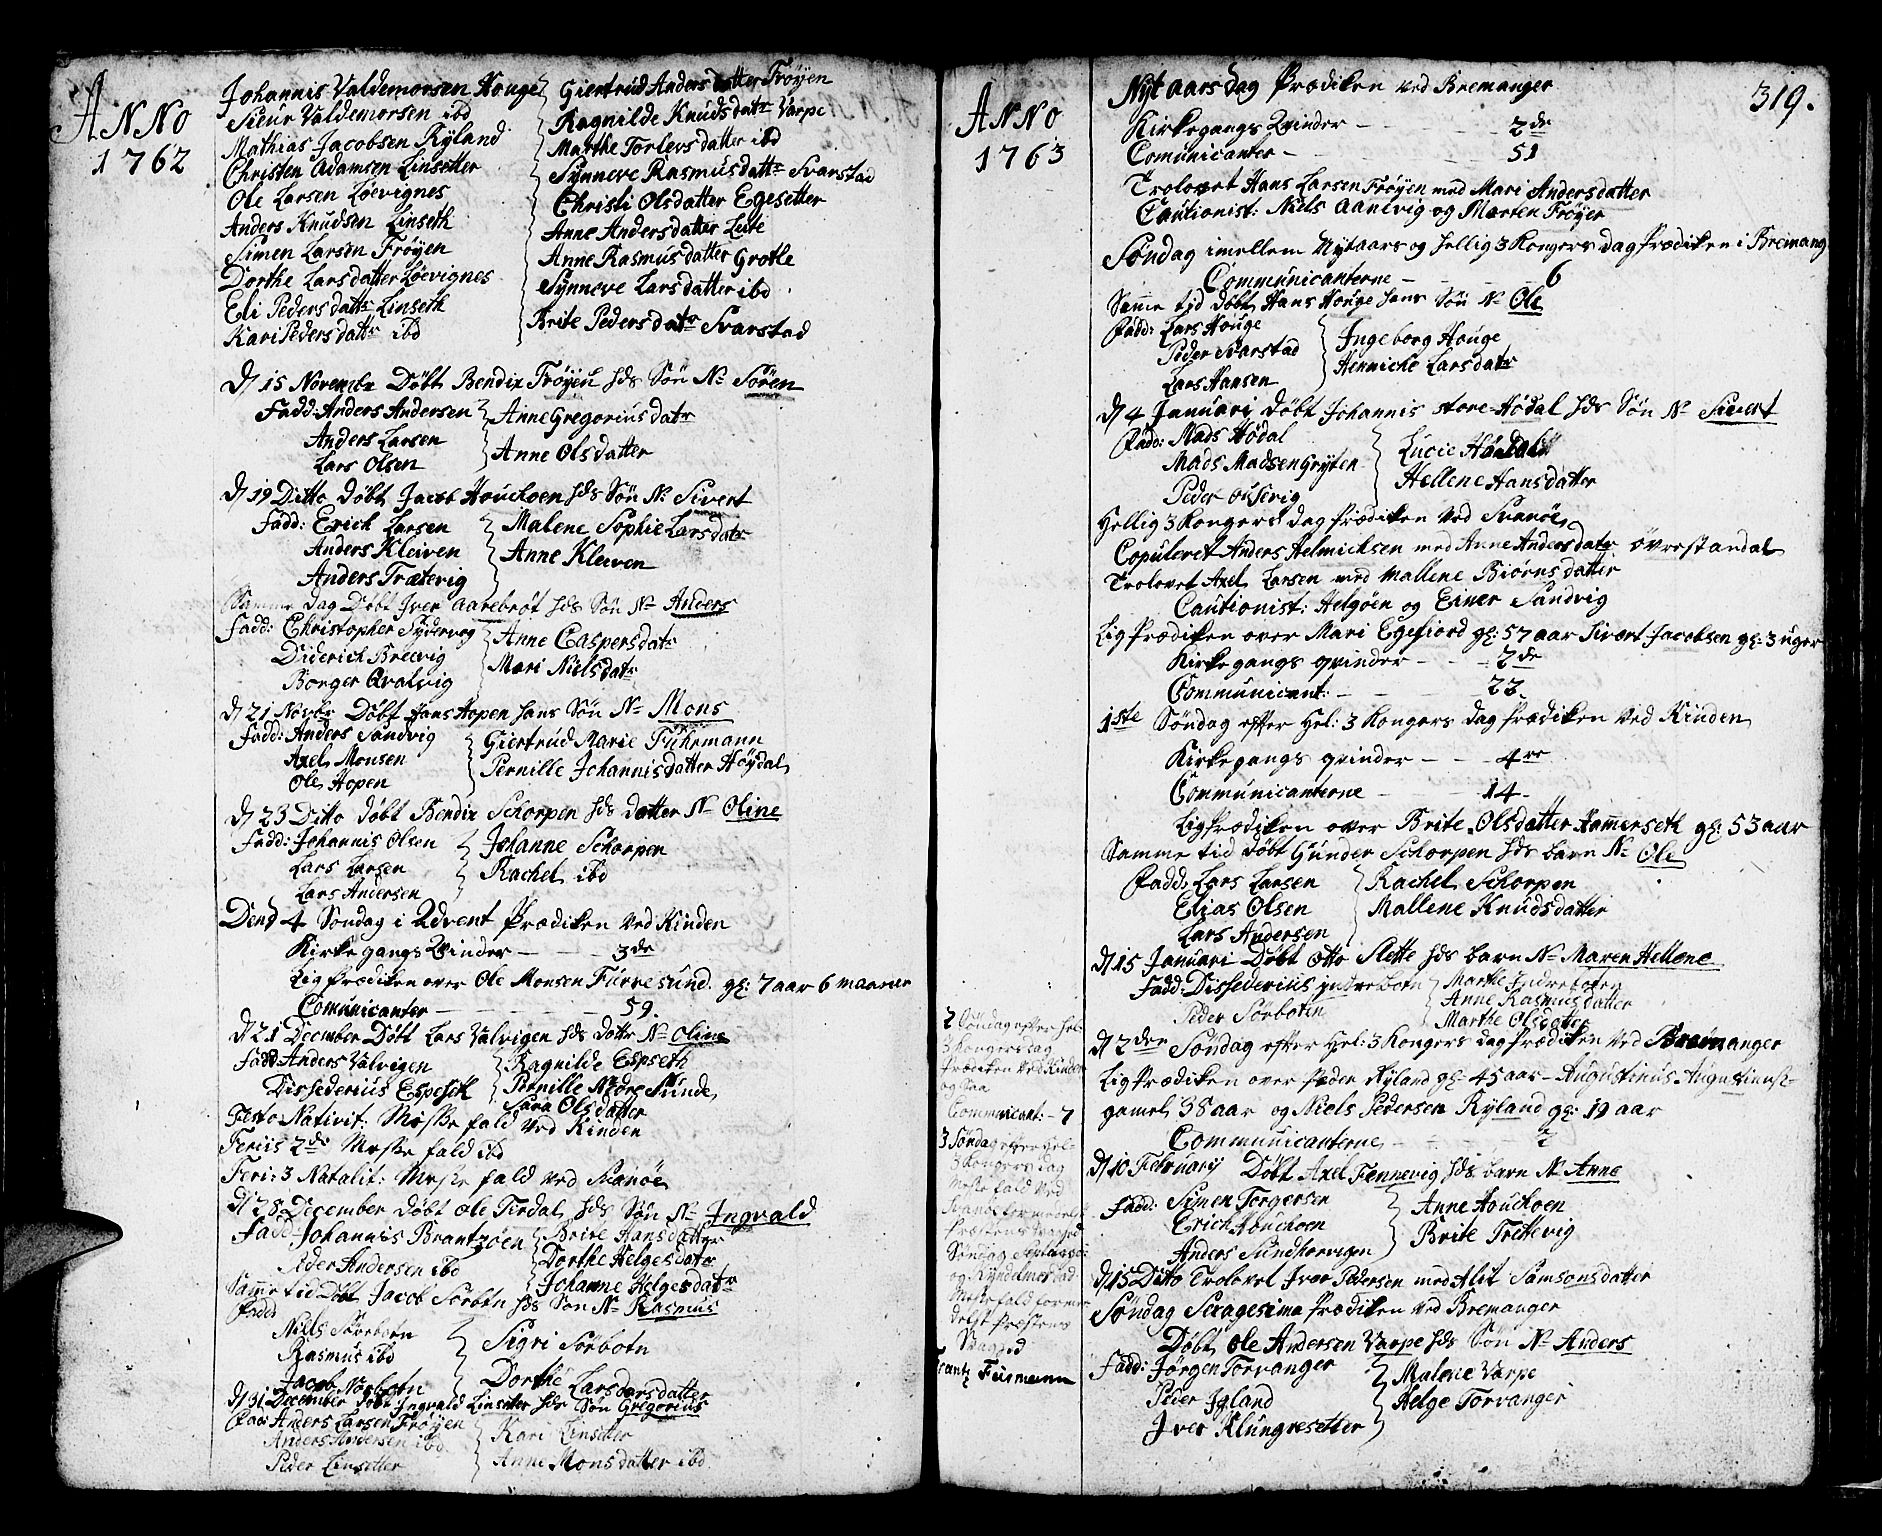 ANNO
1762
Johannis Valdemorsen Houge } Giertrud Andersdatter Frøyen
Sieur Valdemorsen ibd } Ragnilde Knudsdatr Varpe
Mathias Jacobsen Ryland } Marthe Torlevsdatter ibd
Christen Adamsen Linsetter } Synneve Rasmusdattr Svarstad
Ole Larsen Løevignes } Christi Olsdatter Egesetter
Anders Knudsen Linseth } Anne Andersdatter Lute
Simen Larsen Frøyen } Anne Rasmusdatter Grotle
Dorthe Larsdatter Løevignes } Synneve Larsdatter ibd
Eli Pedersdattr Linseth } Brite Pedersdatr Svarstad
Kari Pedersdattr ibd
d/ 15 Novembr Døbt Bendix Frøyen hds Søn N- Søren
Fadd: Anders Andersen } Anne Gregoriusdatr
Anders Larsen
Lars Olsen } Anne Olsdatter
d/ 19 Ditto døbt Jacob Houchoen hds Søn N- Sivert
Fadd: Erich Larsen } Malene Sophie Larsdatr
Anders Kleiven } Anne Kleiven
Anders Trætevig
Samme dag Døbt Iver Aarebrøt hds Søn N- Anders
Fadd: Christopher Sydervog } Anne Caspersdatr
Diderich Brecvig } Mari Nielsdatr
Borger Qvalvig
d/ 21 Novbr Døbt Hans Hopen hans Søn N- Mons
Fadd: Anders Sandvig } Giertrud Marie Fuhrmann
Axel Monsen } Pernille Johannisdatter Høydal
Ole Hopen
d/ 23 Ditto døbt Bendix Schorpen hds datter N- Oline
Fadd: Johannis Olsen } Johanne Schorpen
Lars Larsen } Rachel ibd
Lars Andersen
Dend 4 Søndag i Advent Prædiken ved Kinden
Kirkegangs Qvinder - - - 3de
Ligprædiken over Ole Monsen Furresund. gl: 7 aar 6 maaner
Comunicanter - - - 59.
d/ 21 December Døbt Lars Valvigen hds dattr N- Oline
Fadd Anders Valvigen } Ragnilde Espseth
Dissederius Espeseth } Pernille Nedre Sunde
Sara Olsdatter
Festo Nativit: Messe fald ved Kinden
Feriis 2de Messe fald ibd
Feri: 3 Natalit: Messe fald ved Svanøe
d/ 28 December døbt Ole Tirdal hds Søn N- Ingvald
Fadd Johannis Brantzøen } Brite Hansdatter
Peder Andersen ibd } Dorthe Helgesdatr
Johanne Helgesdatr
Samme tid Døbt Jacob Sørbotn hds Søn N- Rasmus
Fadd
Niels Sørebotn } Sigri Sørbotn
Rasmus ibd
Jacob Norbotn } Dorthe Larsdatter
d/ 31 December døbt Ingvald Linsetter hds Søn Gregorius
Fadd Anders Larsen Frøyen } Kari Linsetter
Anders Andersen ibd
Peder Linsetter } Anne Monsdatter ibd
ANNO
1763
319.
Nyt aars dag Prædiken ved Bremanger
Kirkegangs Qvinder - - - 2de
Comunicanter - - - 51
Trolovet Hans Larsen Frøyen med Mari Andersdatter
Cautionist: Niels Aanevig og Morten Frøyer
Søndag imellem Nytaars og hellig 3 Kongers dag Prædiken i Bremang
Communicanterne - - - 6
Samme tid døbt Hans Houge hans Søn N- Ole
Fadd: Lars Houge } Ingeborg Houge
Peder Svarstad } Henniche Larsdatr
Lars Hansen
d/ 4 Januari døbt Johannis store-Hødal hds Søn N- Sivert
Fadd: Mads Hødal } Lucie Hødal
Mads Madsen Gryten } Hellene Hansdatter
Peder Ousevig
Hellig 3 Kongers dag Prædiken ved Svanøe
Copuleret Anders Helmichsen med Anne Andersdatr øvrestandal
Trolovet Axel Larsen med Mallene Biørnsdatter
Cautionist: Helgøen og Einer Sandvig
Ligprædiken over Mari Egefiord gl: 57 aar Sivert Jacobsen gl: 3 uger
Kirkegangs qvinder - - - 2de
Communicant: - - - 22.
1ste Søndag efter Hel: 3 Kongers dag Prædiken ved Kinden
Kirkegangs qvinder - - 4re
Communicanterne - - 14-
Ligprædiken over Brite Olsdatter Hammerseth gl: 53 aar
Samme tid døbt Gunder Schorpen hds barn N- Ole
Fadd: Lars Larsen } Rachel Schorpen
Elias Olsen } Mallene Knudsdatter
Lars Andersen
d/ 15 Januari Døbt Otto Slette hds barn N- Maren Hellene
Fadd: Dissederius yndrebotn } Marthe Indrebotn
Peder Sørbotn } Anne Rasmusdatter
Marthe Olsdatter
d/ 2den Søndag efter Hel: 3 Kongers dag Prædiken ved Bremanger
Ligprædiken over Peder Ryland gl- 45 aar - Augustinus Augustinus:-
gamel 38 aar og Niels Pedersen Ryland gl: 19 aar
Communicanterne - - - 2
d/ 10 Februarij Døbt Axel Fennevig hds barn N- Anne
Fadd: Simen Torgersen } Anne Houchoen
Erich Houchoen } Brite Trettevig
Anders Sundhorvigen
d/ 15 Ditto Trolovet Iver Pedersen med Alit Samsonsdatter
Søndag Sexagesima Prædiken ved Bremanger
Døbt Ole Andersen Varpe hds Søn N- Anders
Fadd: Jørgen Torvanger } Malene Varpe
Peder Igland } Helge Torvanger
Iver Klungresetter
2 Søndag efter Hel-
3 Kongersdag
Prædiken ved Kinden
og Paa
Communicant: - 7
3 Søndag efter Hel-
3 Kongers dag
Messe fald ved
Svanøe formedelst
Præstens Svaged
Søndag Septuages:
og Kyndelmes dag
Messefald forme-
delst Præstens
Svaged
Frantz Feirmann